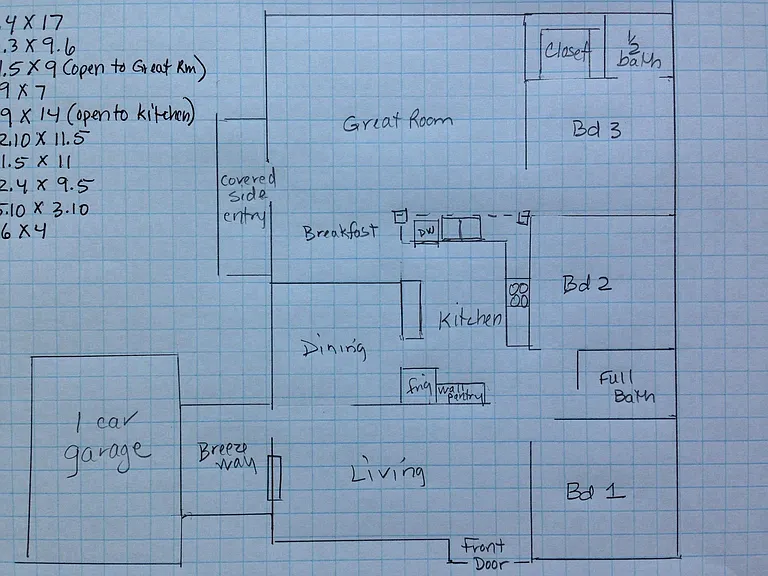 .4 X 17
.3 X 9.6
1.5 X 9 (open to Great Rm)
9 X 7
9 X 14 (open to kitchen)
2.10 X 11.5
1.5 X 11
2.4 X 9.5
5.10 X 3.10
6 X 4
Closet
1/2
bath
Great Room
Bd 3
Covered
side
entry
Breakfast
DW
Bd 2
Kitchen
Dining
Full
Bath
frig
wall
pantry
1 car
garage
Breeze
way
Living
Bd 1
Front
Door